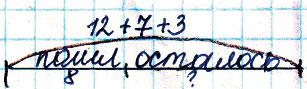 12+7+3
пошил, осталось
8 ?